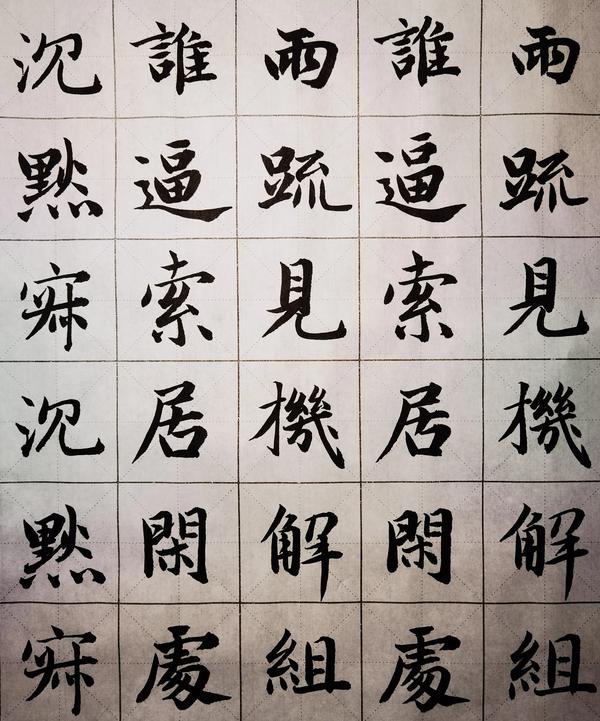 兩疏見機解組
誰逼索居閑處
兩疏見機解組
誰逼索居閑處
沉默寂沉默寂